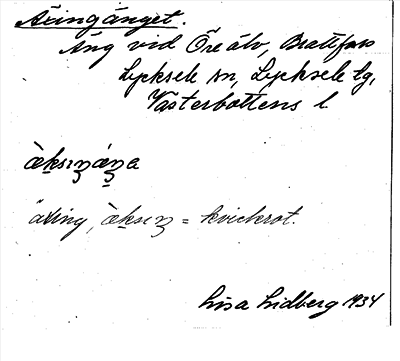 Äxingänget.
Äng vid Öreälv, Brattfors
Lycksele sn, Lycksele tg,
Västerbottens l
äxing, = kvickrot.
Lisa Lidberg 1934